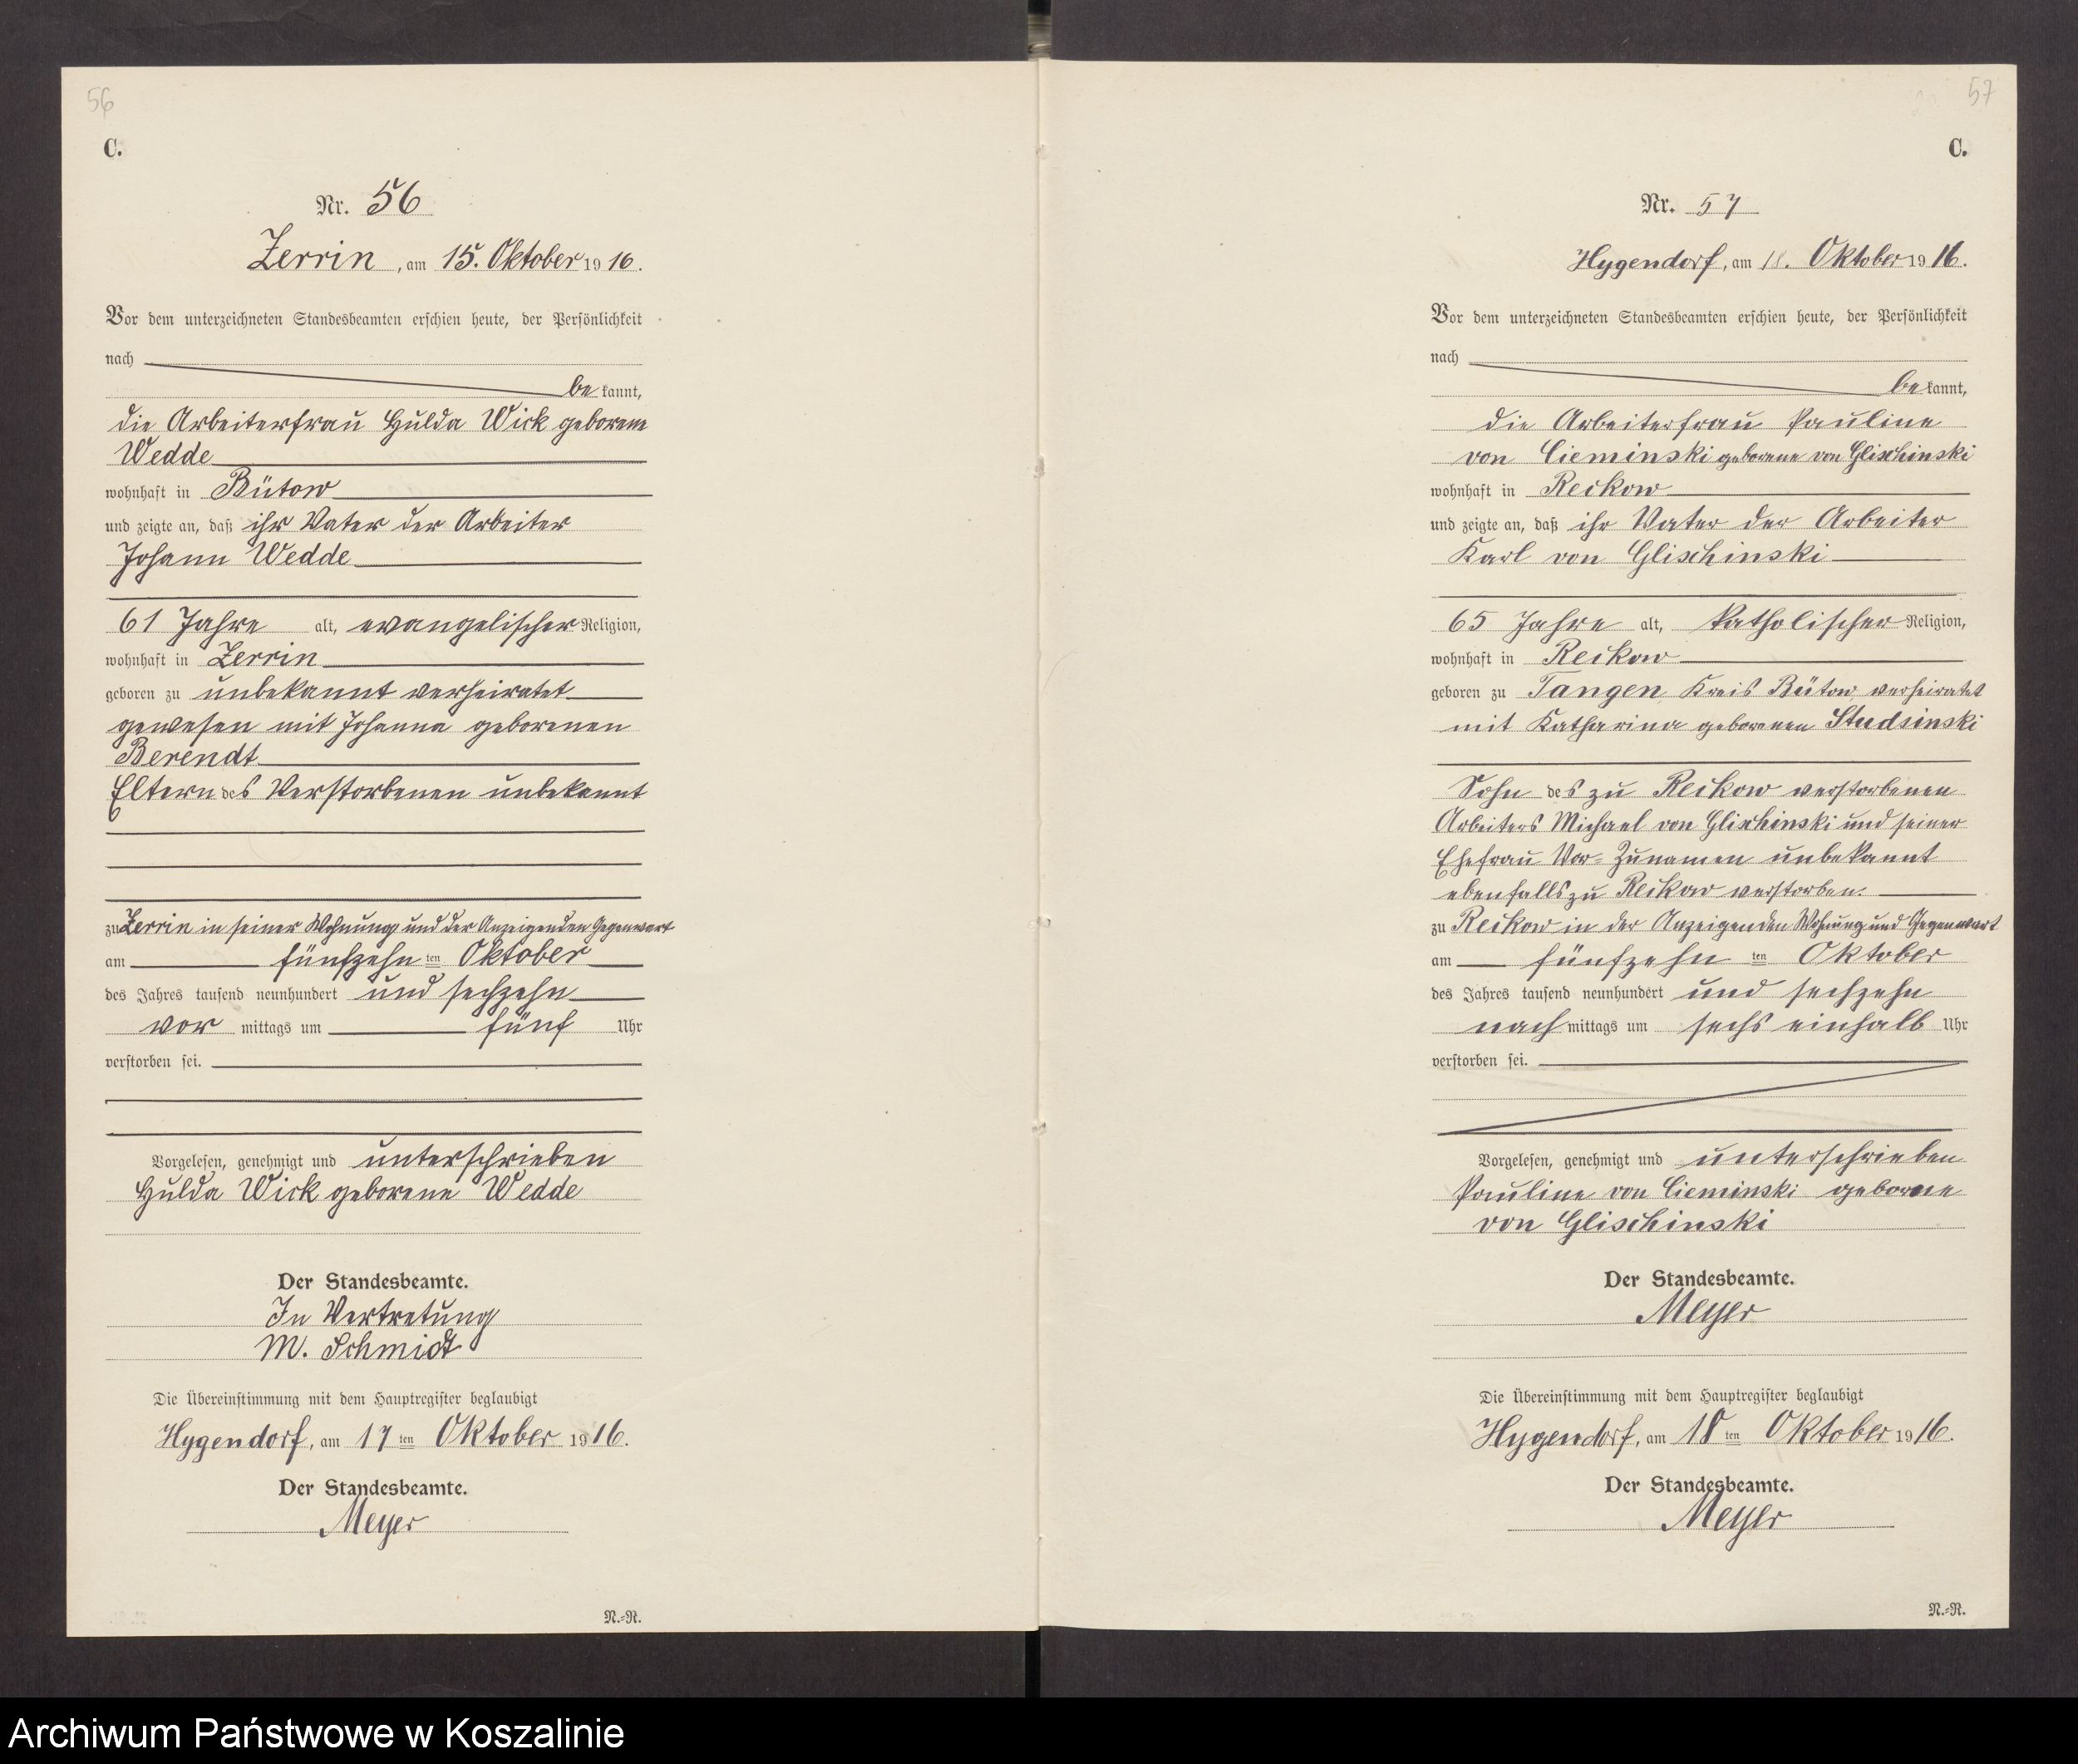 56
C.
Nr. 56
Zerrin, am 15. Oktober 1916.
Vor dem unterzeichneten Standesbeamten erschien heute, der Persönlichkeit
nach
bekannt,
die Arbeiterfrau Hulda Wick geborene
Wedde
wohnhaft in Bütow
und zeigte an, daß ihr Vater der Arbeiter
Johann Wedde
61 Jahre alt, evangelischer Religion,
wohnhaft in Zerrin
geboren zu unbekannt verheiratet
gewesen mit Johanna geborenen
Berendt
Eltern des Verstorbenen unbekannt
zu Zerrin in seiner Wohnung und der Anzeigenden Gegenwart
am fünfzehn ten Oktober
des Jahres tausend neunhundert und sechzehn
vor mittags um fünf Uhr
verstorben sei.
Vorgelesen, genehmigt und unterschrieben
Hulda Wick geborene Wedde
Der Standesbeamte.
In Vertretung
M. Schmidt
Die Übereinstimmung mit dem Hauptregister beglaubigt
Hygendorf, am 17 ten Oktober 1916.
Der Standesbeamte.
Meyer
N.-R.
57
C.
Nr. 57
Hygendorf, am 18. Oktober 1916.
Vor dem unterzeichneten Standesbeamten erschien heute, der Persönlichkeit
nach
bekannt,
die Arbeiterfrau Pauline
von Cieminski geborene von Glischinski
wohnhaft in Reckow
und zeigte an, daß ihr Vater der Arbeiter
Karl von Glischinski
65 Jahre alt, katholischer Religion,
wohnhaft in Reckow
geboren zu Tangen Kreis Bütow verheiratet
mit Katharina geborenen Studsinski
Sohn des zu Reckow verstorbenen
Arbeiters Michael von Glischinski und seiner
Ehefrau Vor- Zunamen unbekannt
ebenfalls zu Reckow verstorben.
zu Reckow in der Anzeigenden Wohnung und Gegenwart
am fünfzehn ten Oktober
des Jahres tausend neunhundert und sechzehn
nach mittags um sechs einhalb Uhr
verstorben sei.
Vorgelesen, genehmigt und unterschrieben
Pauline von Cieminski geborne
von Glischinski
Der Standesbeamte.
Meyer
Die Übereinstimmung mit dem Hauptregister beglaubigt
Hygendorf, am 18 ten Oktober 1916.
Der Standesbeamte.
Meyer
N.-R.
Archiwum Państwowe w Koszalinie